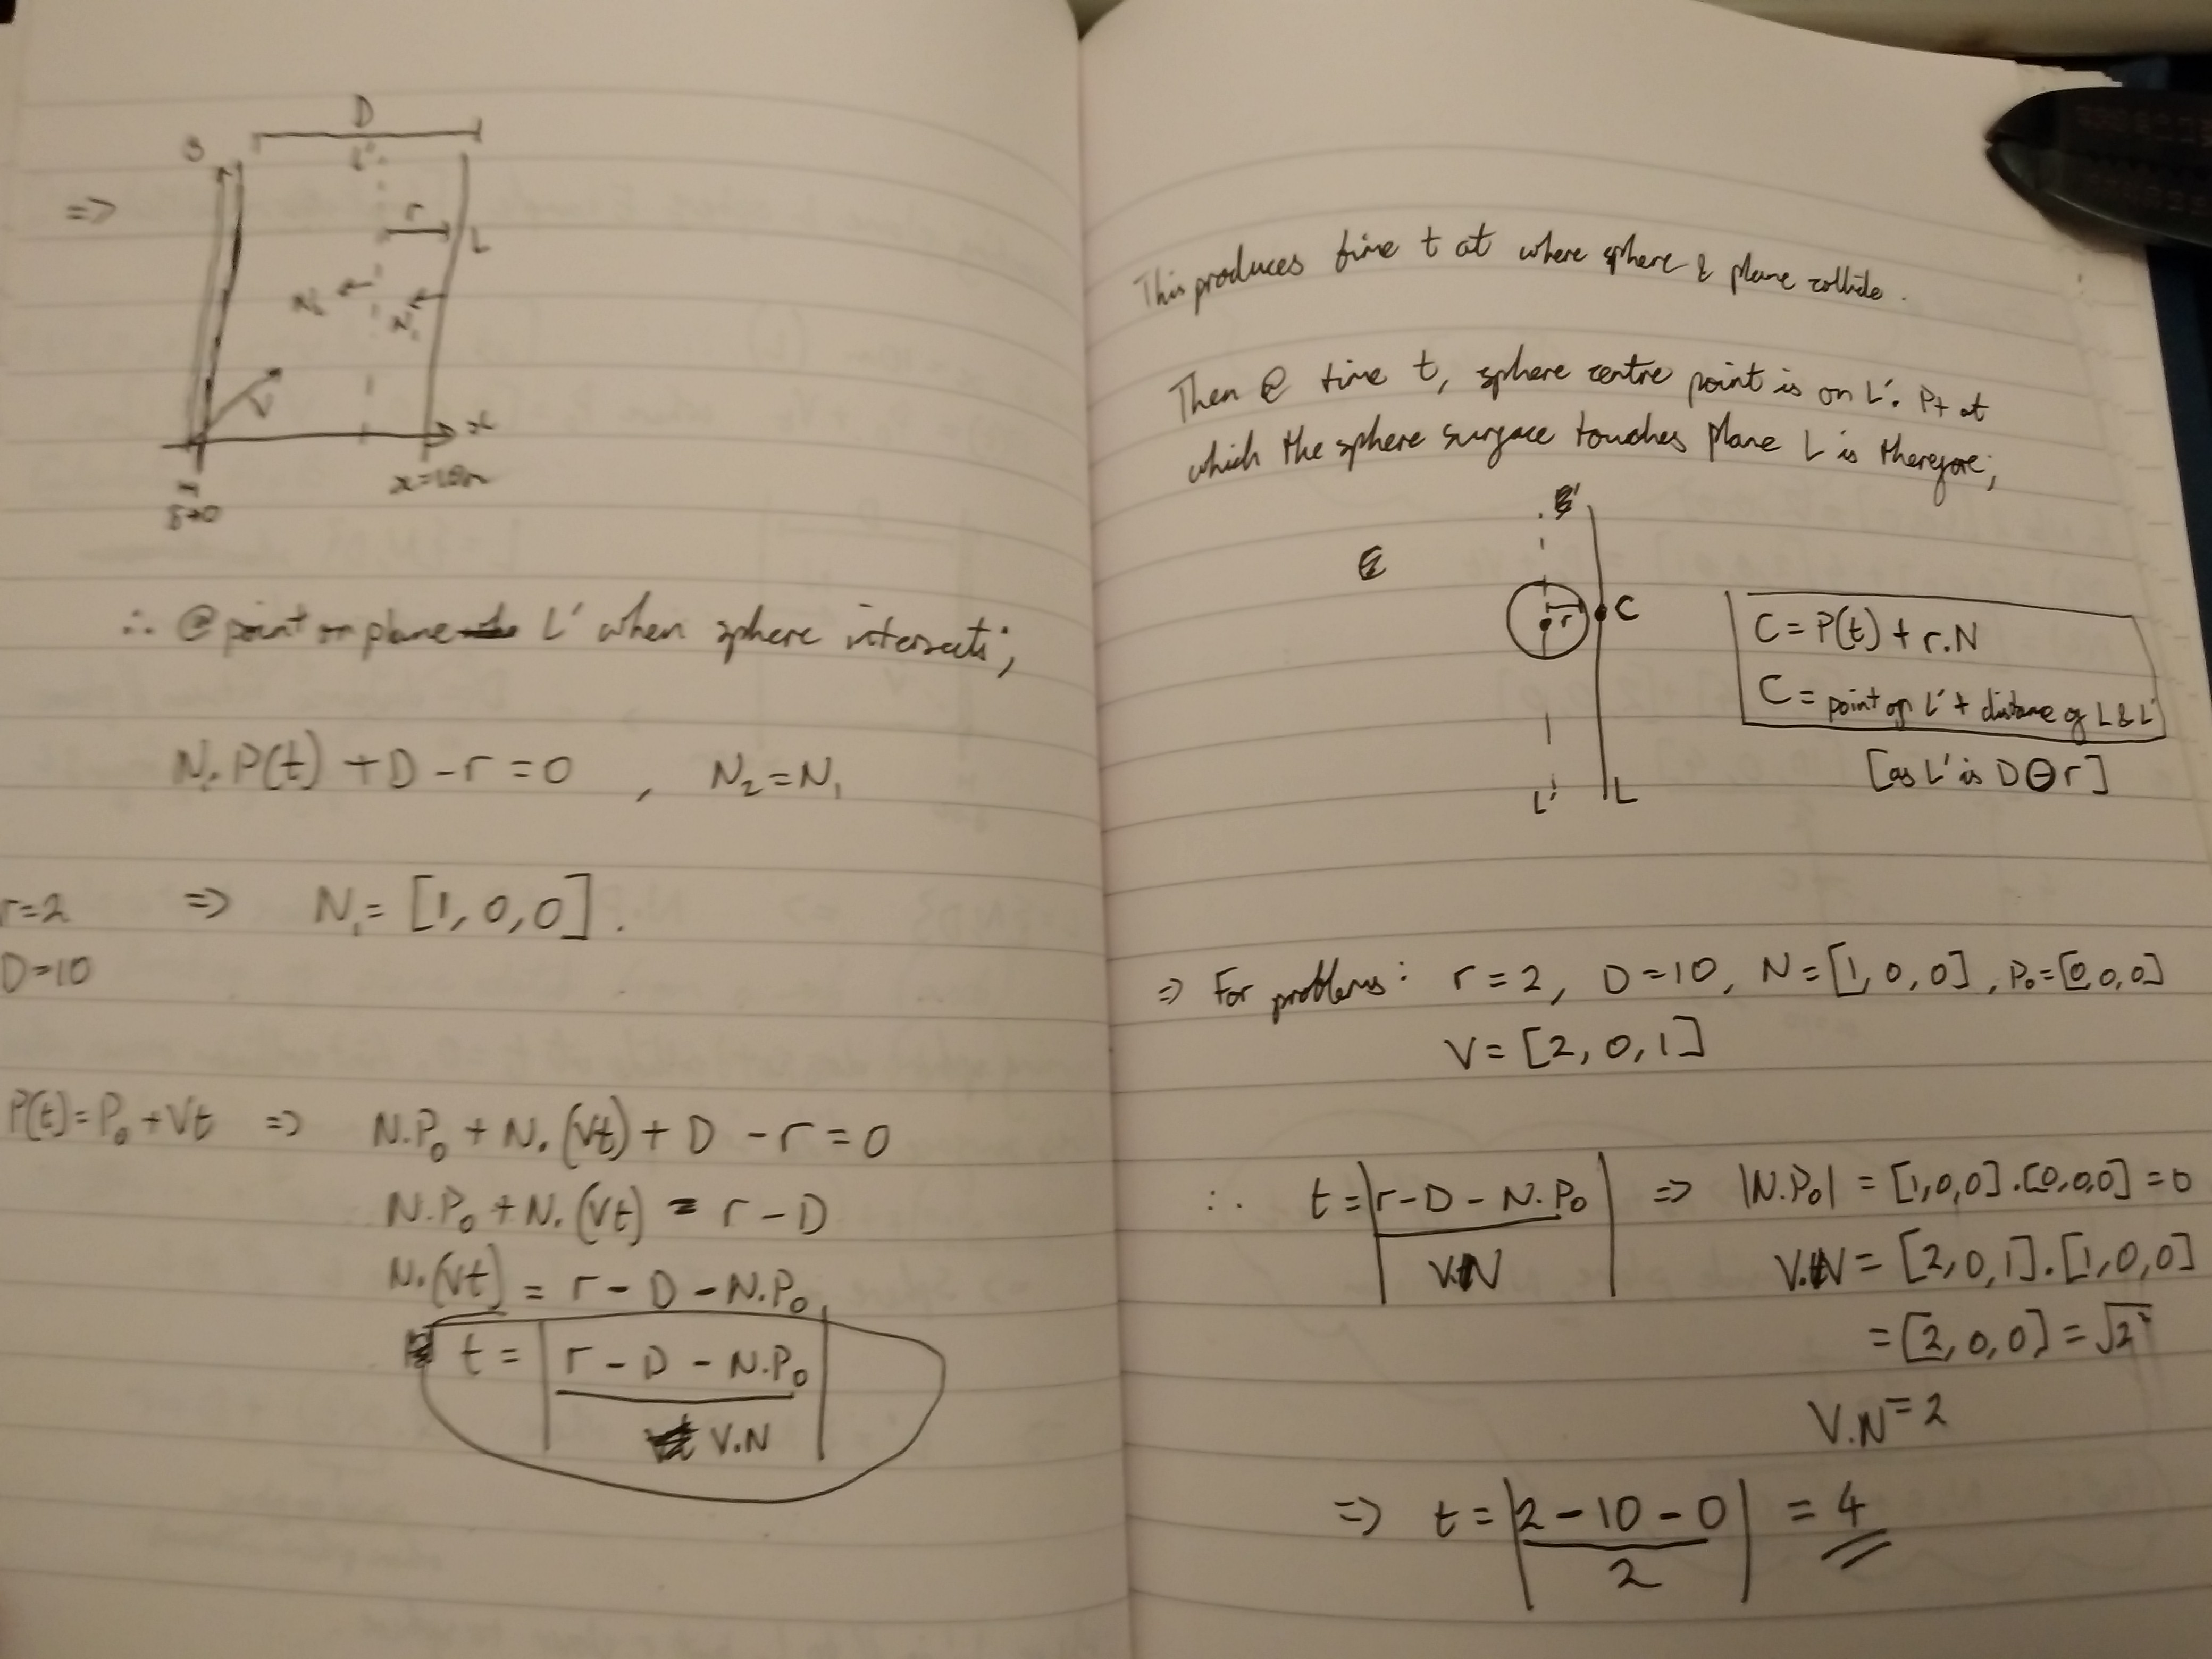 D
S
L'
=>
r
L
N₂
N₁
V
x
x=10m
∴ @ point on plane L' when sphere intersects;
N.P(t) + D - r = 0 , N₂ = N₁
r=2 => N₁ = [1, 0, 0].
D=10
P(t) = P₀ + Vt => N.P₀ + N.(Vt) + D - r = 0
N.P₀ + N.(Vt) = r - D
N.(Vt) = r - D - N.P₀
t = | r - D - N.P₀
V.N |
This produces time t at where sphere & plane collide.
Then @ time t, sphere centre point is on L'. Pt at
which the sphere surface touches plane L is therefore;
r C
C = P(t) + r.N
C = point on L' + distance of L & L'
L' L
[as L' is D⊖r]
=> For problems: r = 2, D = 10, N = [1, 0, 0], P₀ = [0, 0, 0]
V = [2, 0, 1]
∴ t = | r - D - N.P₀ | => |N.P₀| = [1,0,0].[0,0,0] = 0
V.N V.N = [2, 0, 1].[1, 0, 0]
= [2, 0, 0] = √2²
V.N = 2
=> t = | 2 - 10 - 0 | = 4
2